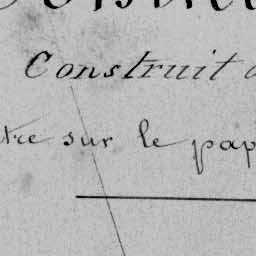 Construit
tre sur le pap